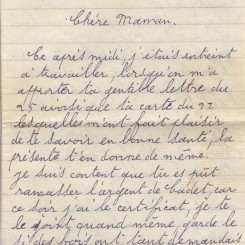 Chère Maman.
Ce après midi, j'étais entreint
à travailler, lorsqu'on m'a
apporter ta gentille lettre du
25 ainsi que ta carte du 22
lesquelles m'ont fait plaisir
de te savoir en bonne santé, la
présente t'en donne de même.
Je suis content que tu es put
ramasser l'argent de Cadet, car
ce soir j'ai le certificat, je te
le joint quand même, garde le
si des fois on t'ant demandait